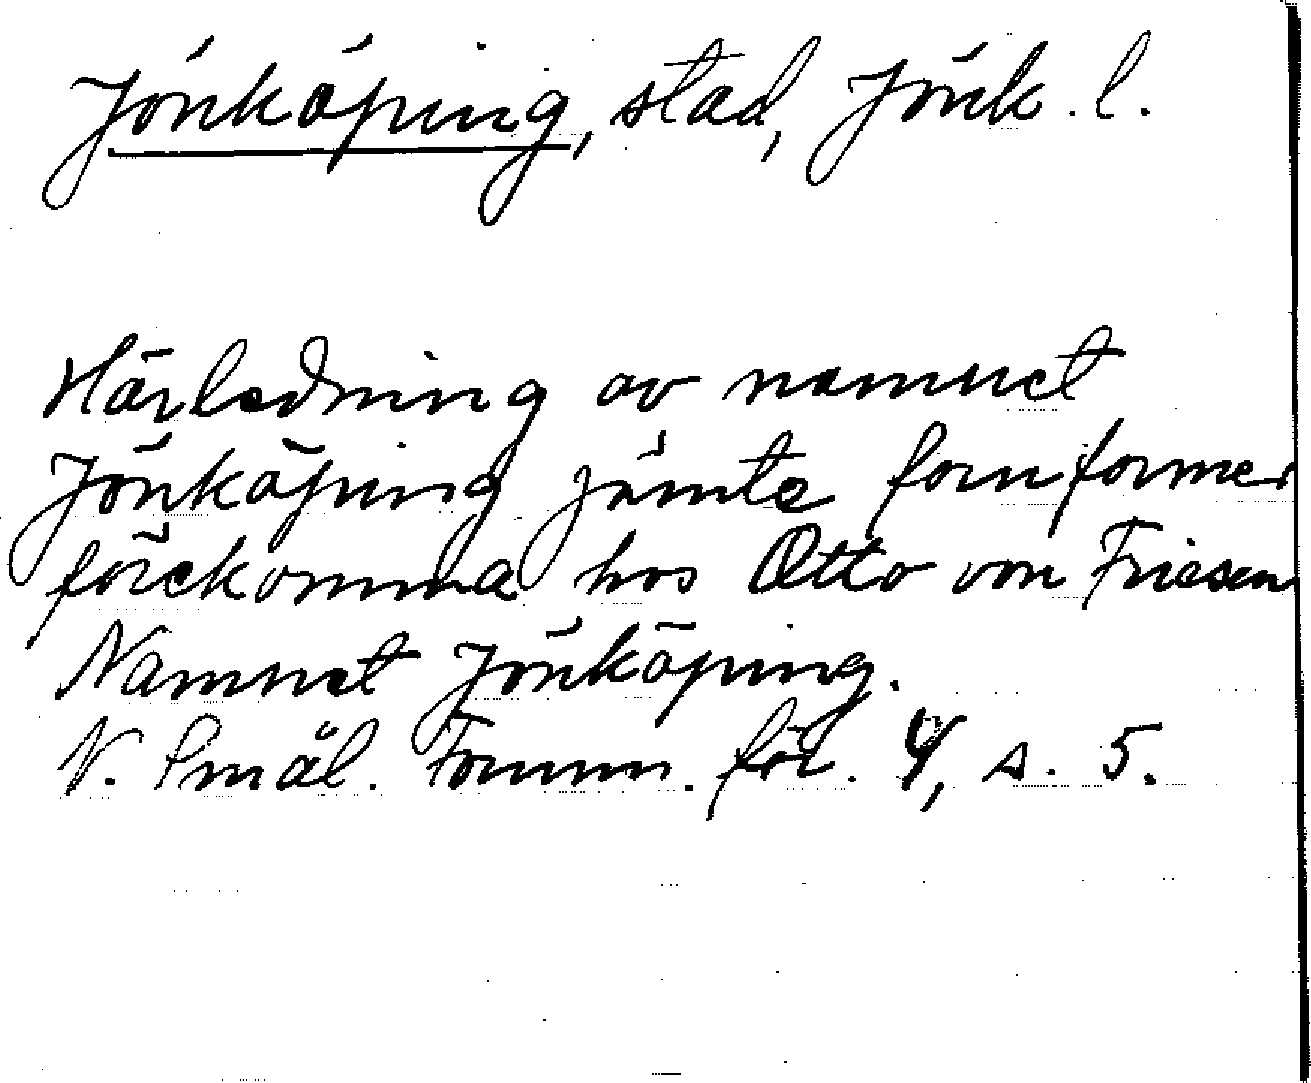 Jönköping, stad, Jönk. l.
Härledning av namnet
Jönköping jämte fornformer
förekomma hos Otto von Friesen
Namnet Jönköping.
N. Smål. Fornm. för. 4, s. 5.